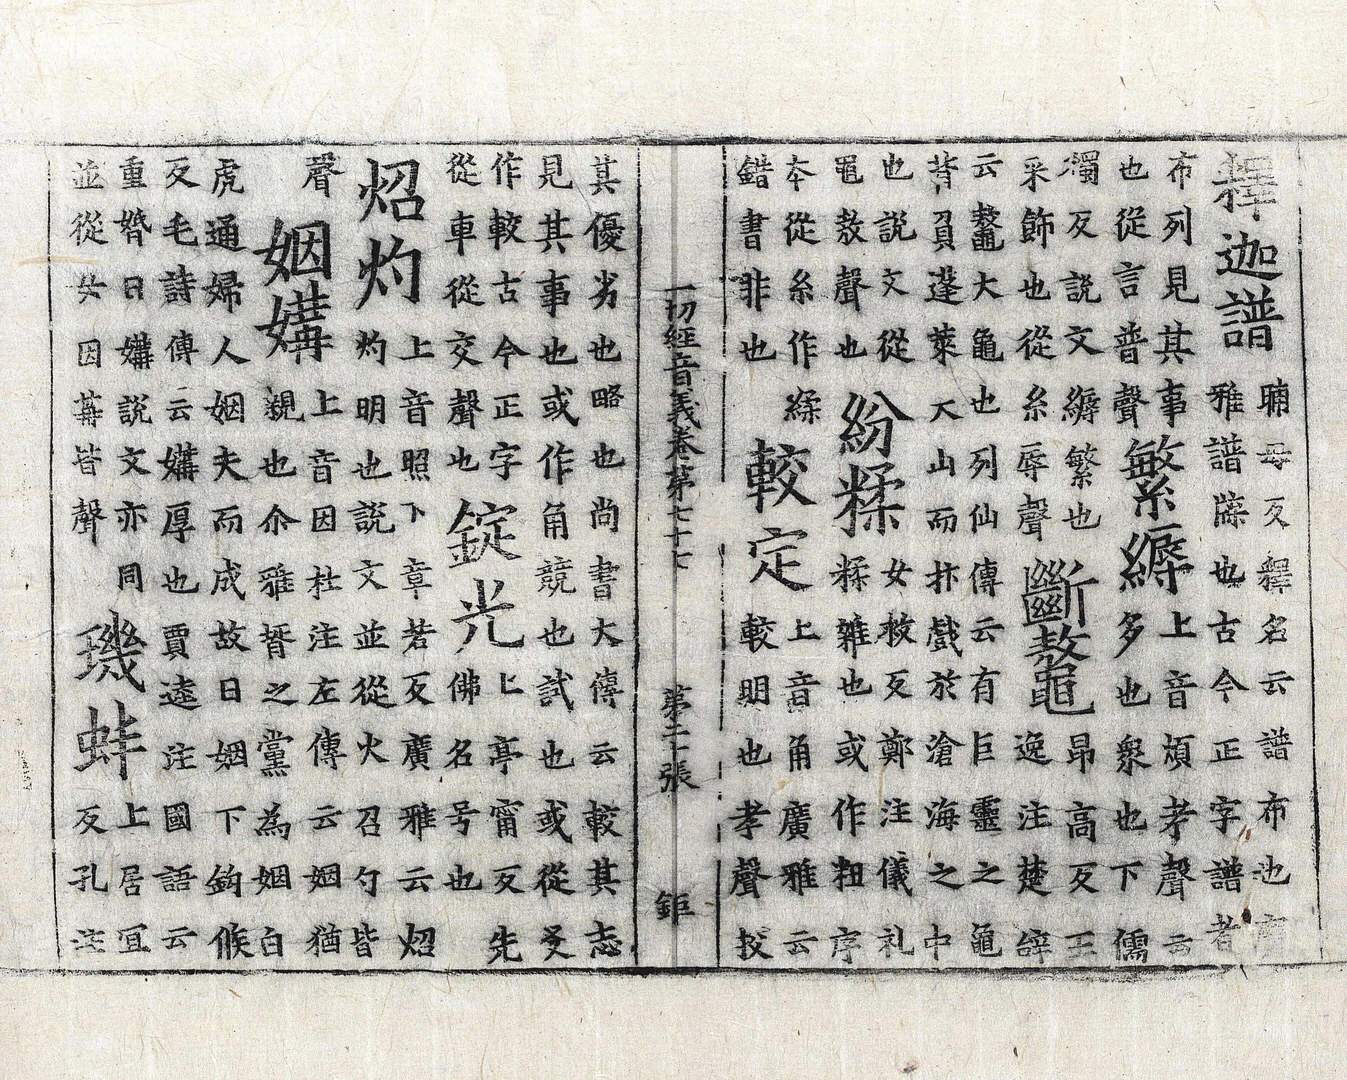 釋迦譜晡母反釋名云譜布也廣雅譜牒也古今正字譜者
布列見其事也從言普聲繁縟上音煩考聲云多也衆也下儒
燭反說文縟繁也采飾也從糸辱聲斷鼇昂高反王逸注楚辭
云鼇大龜也列仙傳云有巨靈之龜背負蓬萊大山而抃戲於滄海之中
也說文從黽敖聲也紛糅女救反鄭注儀礼糅雜也或作粈字
本從糸作繇錯書非也較定上音角廣雅云較明也考聲挍
一切經音義卷第七十七 第二十張 鉅
其優劣也略也尚書大傳云較其志見其事也或作角競也試也或從爻
作較古今正字從車從交聲也錠光上亭甯反先佛名号也
炤灼上音照下章若反廣雅云炤灼明也說文並從火召勺皆
聲姻媾上音因杜注左傳云姻猶親也尒雅壻之黨為姻白
虎通婦人姻夫而成故曰姻下鈎候反毛詩傳云媾厚也賈逵注國語云
重婚曰媾說文亦同並從女因冓皆聲璣蚌上居冝反孔注